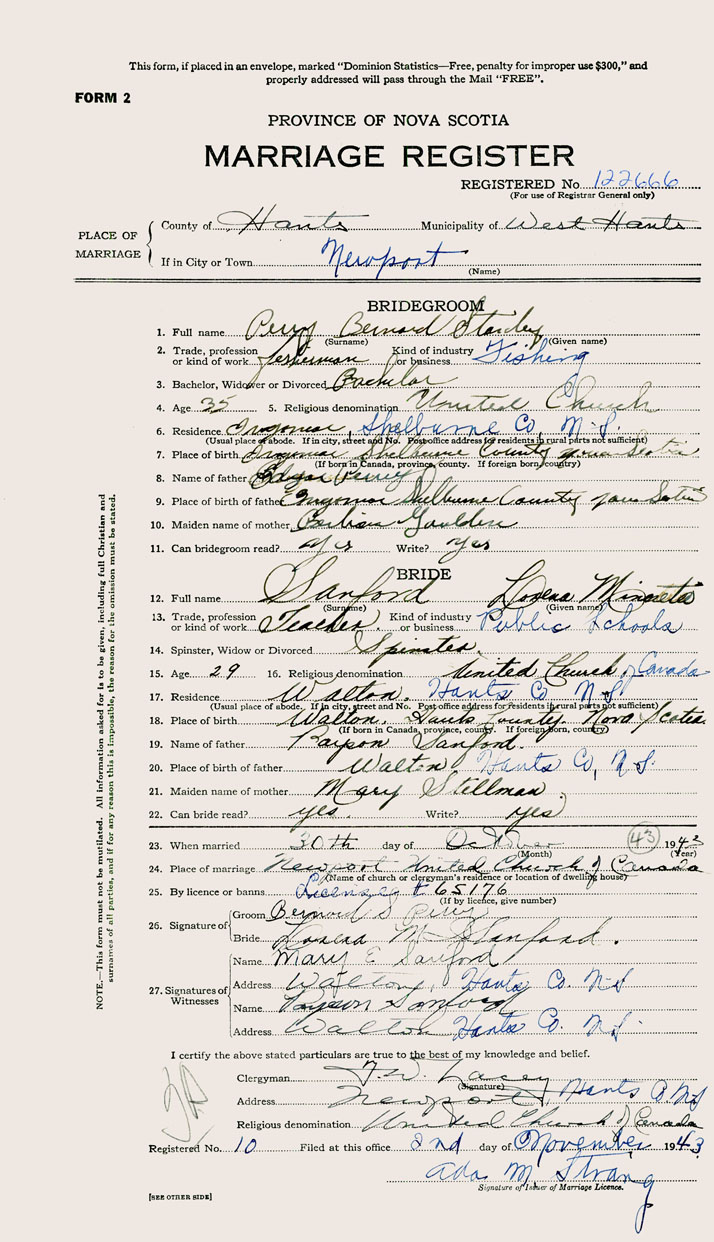 This form, if placed in an envelope, marked “Dominion Statistics—Free, penalty for improper use $300,” and
properly addressed will pass through the Mail “FREE”.
FORM 2
PROVINCE OF NOVA SCOTIA
MARRIAGE REGISTER
REGISTERED No. 122666
(For use of Registrar General only)
PLACE OF MARRIAGE
County of Hants Municipality of West Hants
If in City or Town Newport
(Name)
BRIDEGROOM
1. Full name Perry Bernard Stanley
(Surname) (Given name)
2. Trade, profession or kind of work Fisherman Kind of industry or business Fishing
3. Bachelor, Widower or Divorced Bachelor
4. Age 35 5. Religious denomination United Church
6. Residence Ingomar, Shelburne Co, N.S.
(Usual place of abode. If in city, street and No. Post office address for residents in rural parts not sufficient)
7. Place of birth Ingomar Shelburne County Nova Scotia
(If born in Canada, province, county. If foreign born, country)
8. Name of father Edgar Perry
9. Place of birth of father Ingomar Shelburne County Nova Scotia
10. Maiden name of mother Goulden
11. Can bridegroom read? yes Write? yes
BRIDE
12. Full name Sanford Lorena
(Surname) (Given name)
13. Trade, profession or kind of work Teacher Kind of industry or business Public Schools
14. Spinster, Widow or Divorced Spinster
15. Age 29 16. Religious denomination United Church of Canada
17. Residence Walton, Hants Co N S
(Usual place of abode. If in city, street and No. Post office address for residents in rural parts not sufficient)
18. Place of birth Walton, Hants County, Nova Scotia
(If born in Canada, province, county. If foreign born, country)
19. Name of father Payson Sanford.
20. Place of birth of father Walton Hants Co, N.S.
21. Maiden name of mother Mary Stillman
22. Can bride read? yes. Write? yes
23. When married 30th day of October 43 1943
(Month) (Year)
24. Place of marriage Newport United Church of Canada
(Name of church or clergyman's residence or location of dwelling house)
25. By licence or banns License # 65176
(If by licence, give number)
26. Signature of
Groom Bernard S Perry
Bride Lorena M. Sanford.
27. Signatures of Witnesses
Name Mary E Sanford
Address Walton, Hants Co. N.S
Name Payson Sanford
Address Walton Hants Co. N.S.
I certify the above stated particulars are true to the best of my knowledge and belief.
Clergyman Lacey
(Signature)
Address Newport, Hants Co. N.S
Religious denomination United Church of Canada
Registered No. 10 Filed at this office 2nd day of November 1943
Ada M. Strang
Signature of Issuer of Marriage Licence.
[SEE OTHER SIDE]
NOTE.—This form must not be mutilated. All information asked for is to be given, including full Christian and
surnames of all parties, and if for any reason this is impossible, the reason for the omission must be stated.